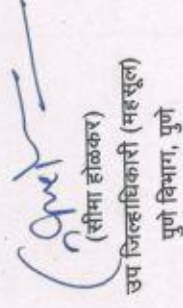 (सीमा होळकर)
उप जिल्हाधिकारी (महसूल)
पुणे विभाग, पुणे